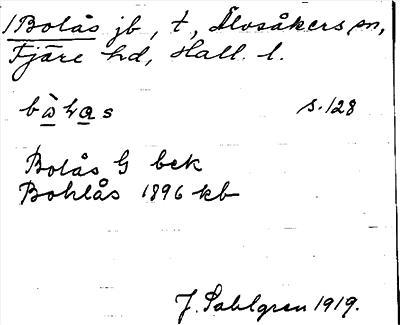 1 Bolås jb, t, Älvsåkers sn,
Fjäre hd, Hall. l.
s. 128
Bolås G bek
Bohlås 1896 kb
J. Sahlgren 1919.